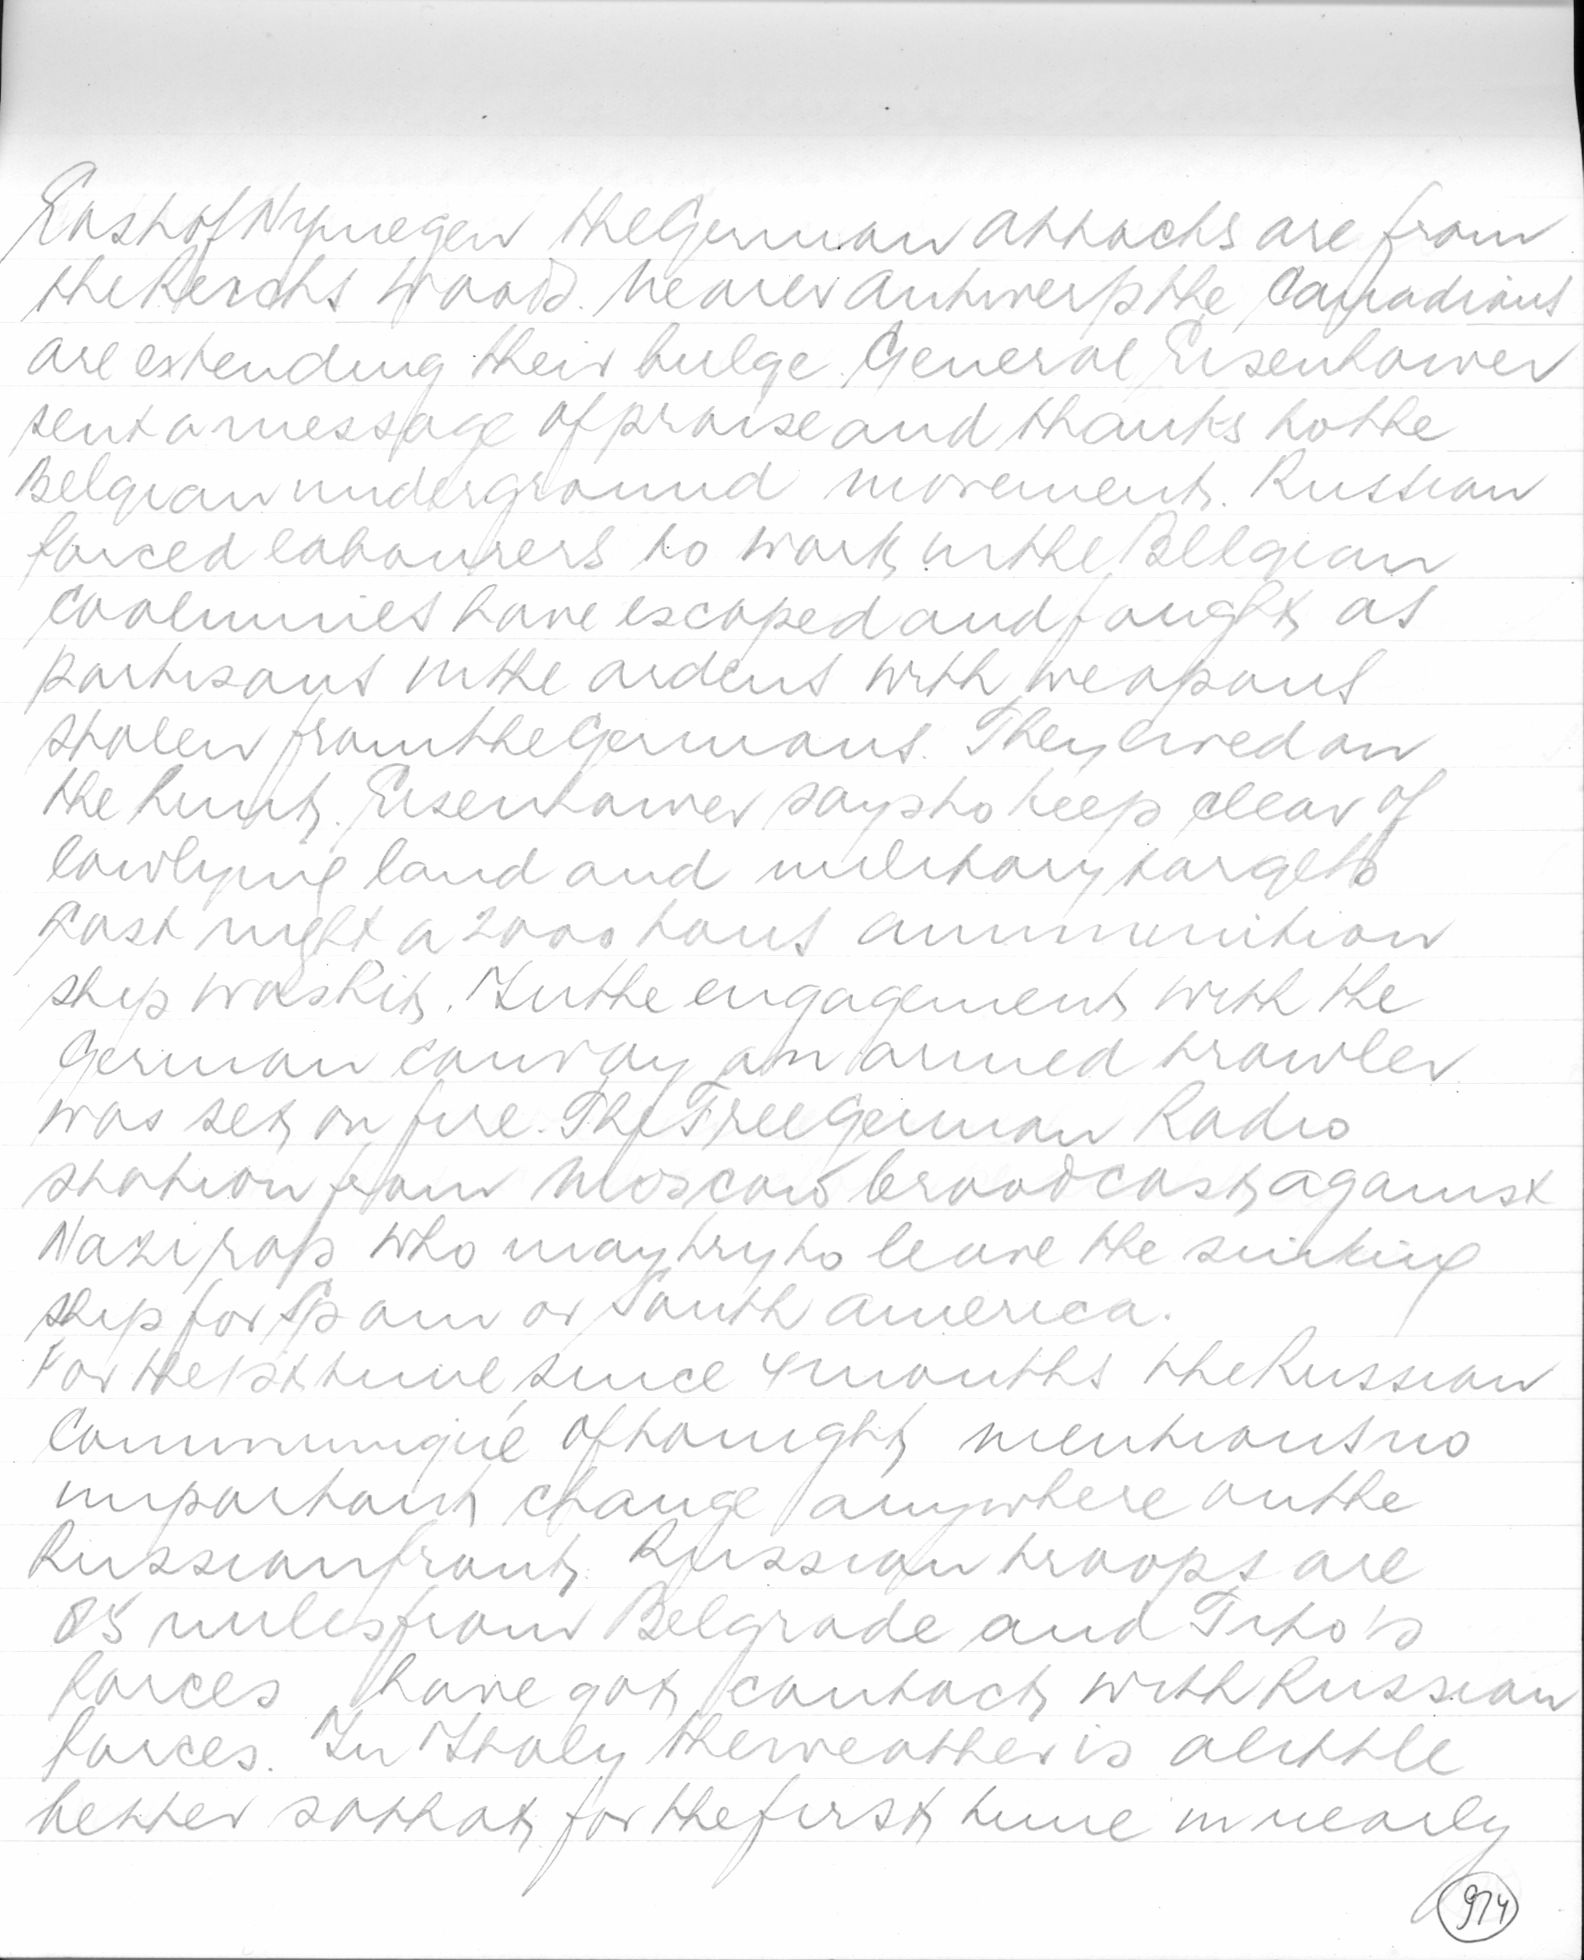 East of Nymegen the German attacks are from
the Reichs wood. Nearer Antwerp the Canadians
are extending their bulge. General Eisenhower
sent a message of praise and thanks to the
Belgian underground movement. Russian
forced labourers to work in the Belgian
Coalmines have escaped and fought as
partisans in the ardens with weapons
stolen from the Germans. They lived on
the hunt. Eisenhower says to keep clear of
lowlying land and military targets
Last night a 2000 tons ammunition
ship was hit. In the engagement with the
German convoy an armed trawler
was set on fire. The Free German Radio
station from Moscow broadcast against
Nazi who may try to leave the sinking
ship for Spain or South America.
For the 1st time since 4 months the Russian
Communiqué of tonight mentions no
important change anywhere on the
Russian front. Russian troops are
85 miles from Belgrade and Tito's
forces have got contact with Russian
forces. In Italy the weather is a little
better so that for the first time in nearly
974